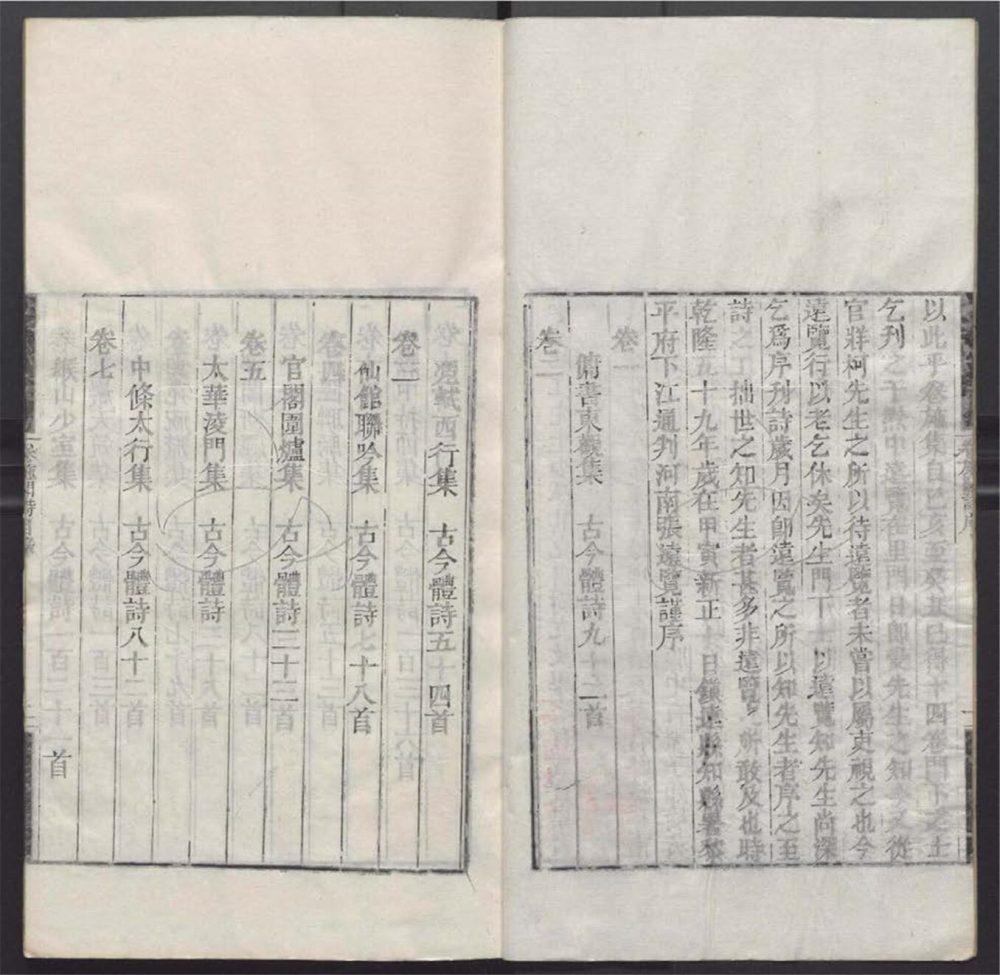 以此乎卷施集自己亥至癸丑已得十四卷門下之士
乞刊之于黔中遠覽在里門日卽受先生之知今又從
官牂柯先生之所以待遠覽者未嘗以屬吏視之也今
遠覽行以老乞休矣先生門下士以遠覽知先生尚深
乞爲序刊詩歲月因卽遠覽之所以知先生者序之至
詩之工拙世之知先生者甚多非遠覽所敢及也時
乾隆五十九年歲在甲寅新正十日鎮遠縣知縣署黎
平府下江通判河南張遠覽謹序
卷一
傭書東觀集 古今體詩九十二首
卷二
西行集 古今體詩五十四首
卷三
仙館聯吟集 古今體詩七十八首
官閣圍爐集 古今體詩三十三首
卷五
太華淩門集 古今體詩
中條太行集 古今體詩八十二
卷七
緱山少室集 古今體詩一百二十一首